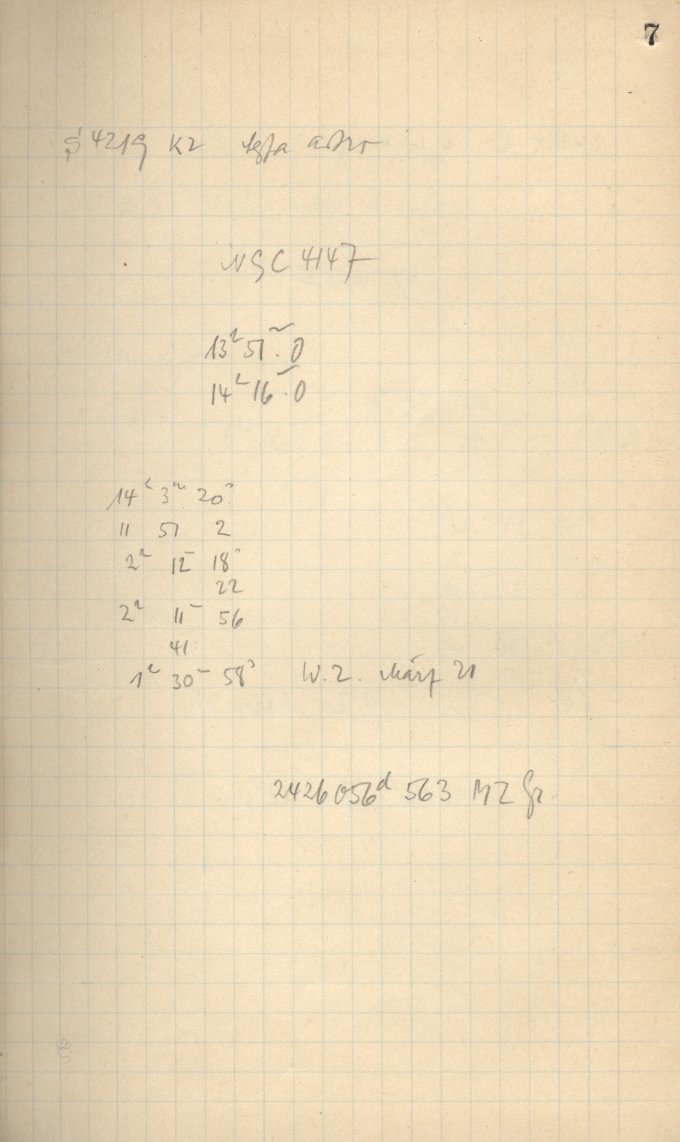 7
S 4219 K2 Agfa Astro
NGC 4147
13ʰ 51ᵐ.0
14ʰ 16ᵐ.0
14ʰ 3ᵐ 20ˢ
11 51 2
2ʰ 12ᵐ 18ˢ
22
2ʰ 11ᵐ 56
41
1ʰ 30ᵐ 58ˢ W.Z. März 21
2426056ᵈ 563 MZ Gr.